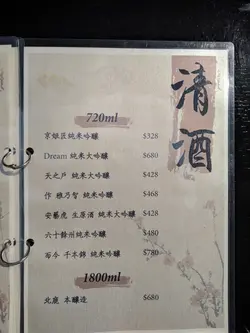 清酒
720ml
京姫匠純米吟釀 $328
Dream 純米大吟釀 $680
天之戶 純米大吟釀 $428
作 雅乃智 純米吟釀 $468
安藝虎 生原酒 純米大吟釀 $428
六十餘州純米吟釀 $480
而今 千本錦 純米吟釀 $780
1800ml
北鹿 本釀造 $680